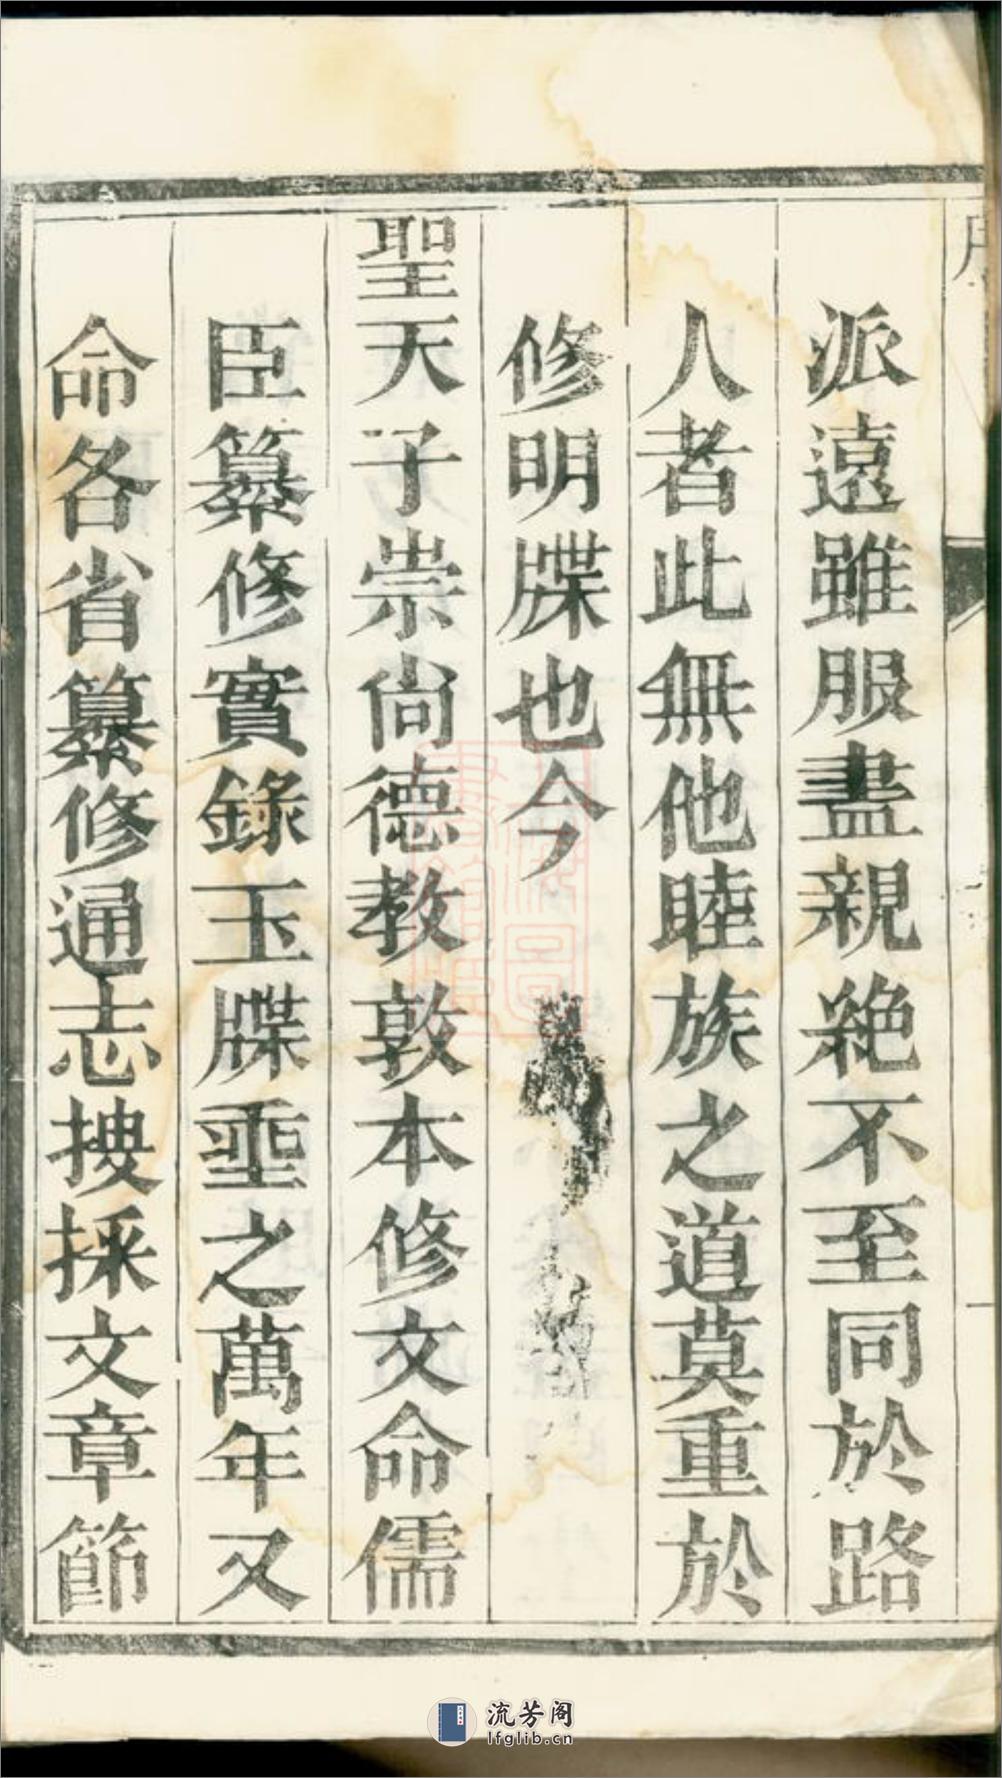 派遠雖服盡親絶不至同於路
人者此無他睦族之道莫重於
修明牒也今
聖天子崇尚德教敦本修文命儒
臣纂修實錄玉牒垂之萬年又
命各省纂修通志搜採文章節
流芳阁
lfglib.cn